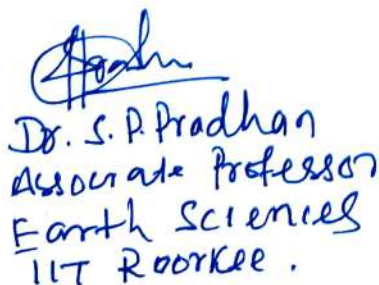 Dr. S. P. Pradhan
Associate Professor
Earth Sciences
IIT Roorkee.